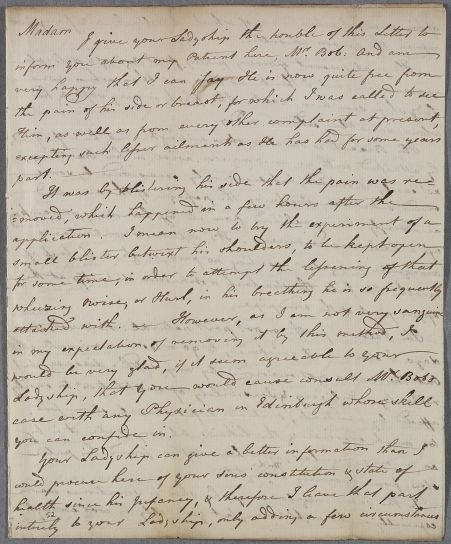 Madam
I give your Ladyship the trouble of this Letter to
inform you about my Patient here, Mr. Bob. And am
very happy that I can say He is now quite free from
the pain of his side or breast, for which I was called to see
Him, as well as from every other complaint at present,
excepting such lesser ailments as He has had for some years
past.
It was by blistering his side that the pain was re-
=moved, which happened in a few hours after the
application. I mean now to try the experiment of a
small blister betwixt his shoulders, to be kept open
for some time, in order to attempt the lessening of that
wheezing noise, or Hurl, in his breathing he is so frequently
attacked with. — However, as I am not very sanguine
in my expectation of removing it by this method, I
would be very glad, if it seem agreeable to your
Ladyship, that you would cause consult Mr. Bob's
case with any Physician in Edinburgh whose skill
you can confide in.
Your Ladyship can give a better information than I
would procure here of your sons constitution & state of
health since his Infancy, & therefore I leave that part
intirely to your Ladyship, only adding a few circumstances